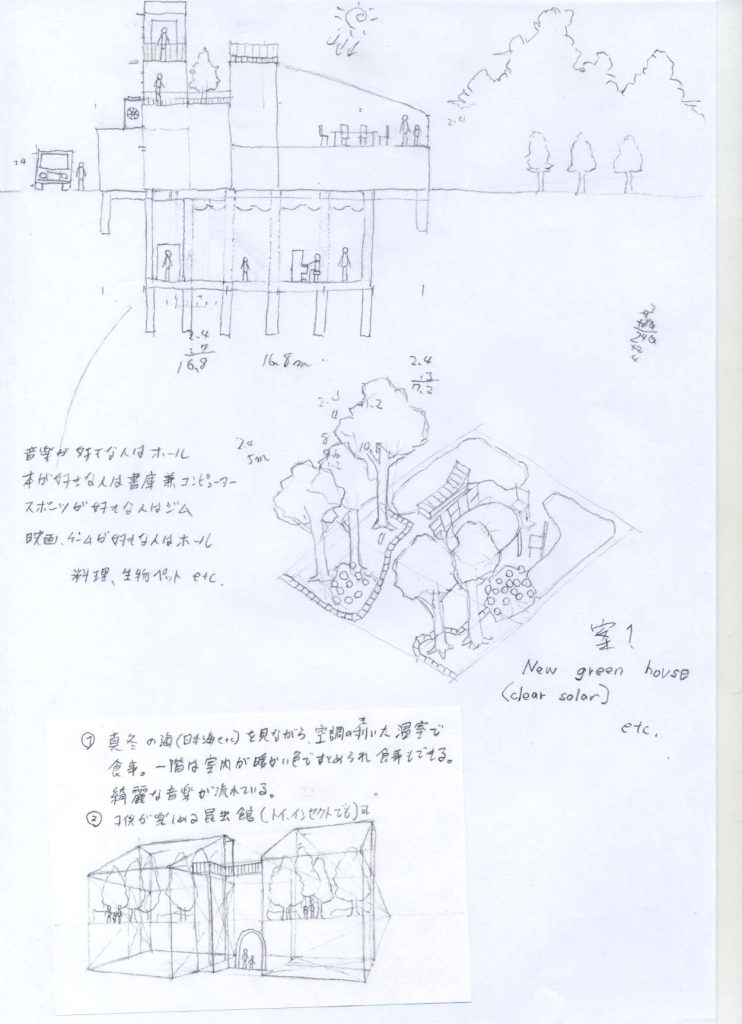 2.4
2.4
2.4
7
16.8
16.8m
2.4
3
7.2
1.2
2.4
5m
音楽が好きな人はホール
本が好きな人は書庫兼コンピューター
スポーツが好きな人はジム
映画、ゲームが好きな人はホール
料理、生物ペット etc.
案1
New green house
(clear solar)
etc.
① 真冬の海(日本海etc)を見ながら、空調の利いた温室で
食事。一階は室内が暖かい色でまとめられ食事もできる。
綺麗な音楽が流れている。
② 子供が楽しめる昆虫館(トイ、インセクトでも)